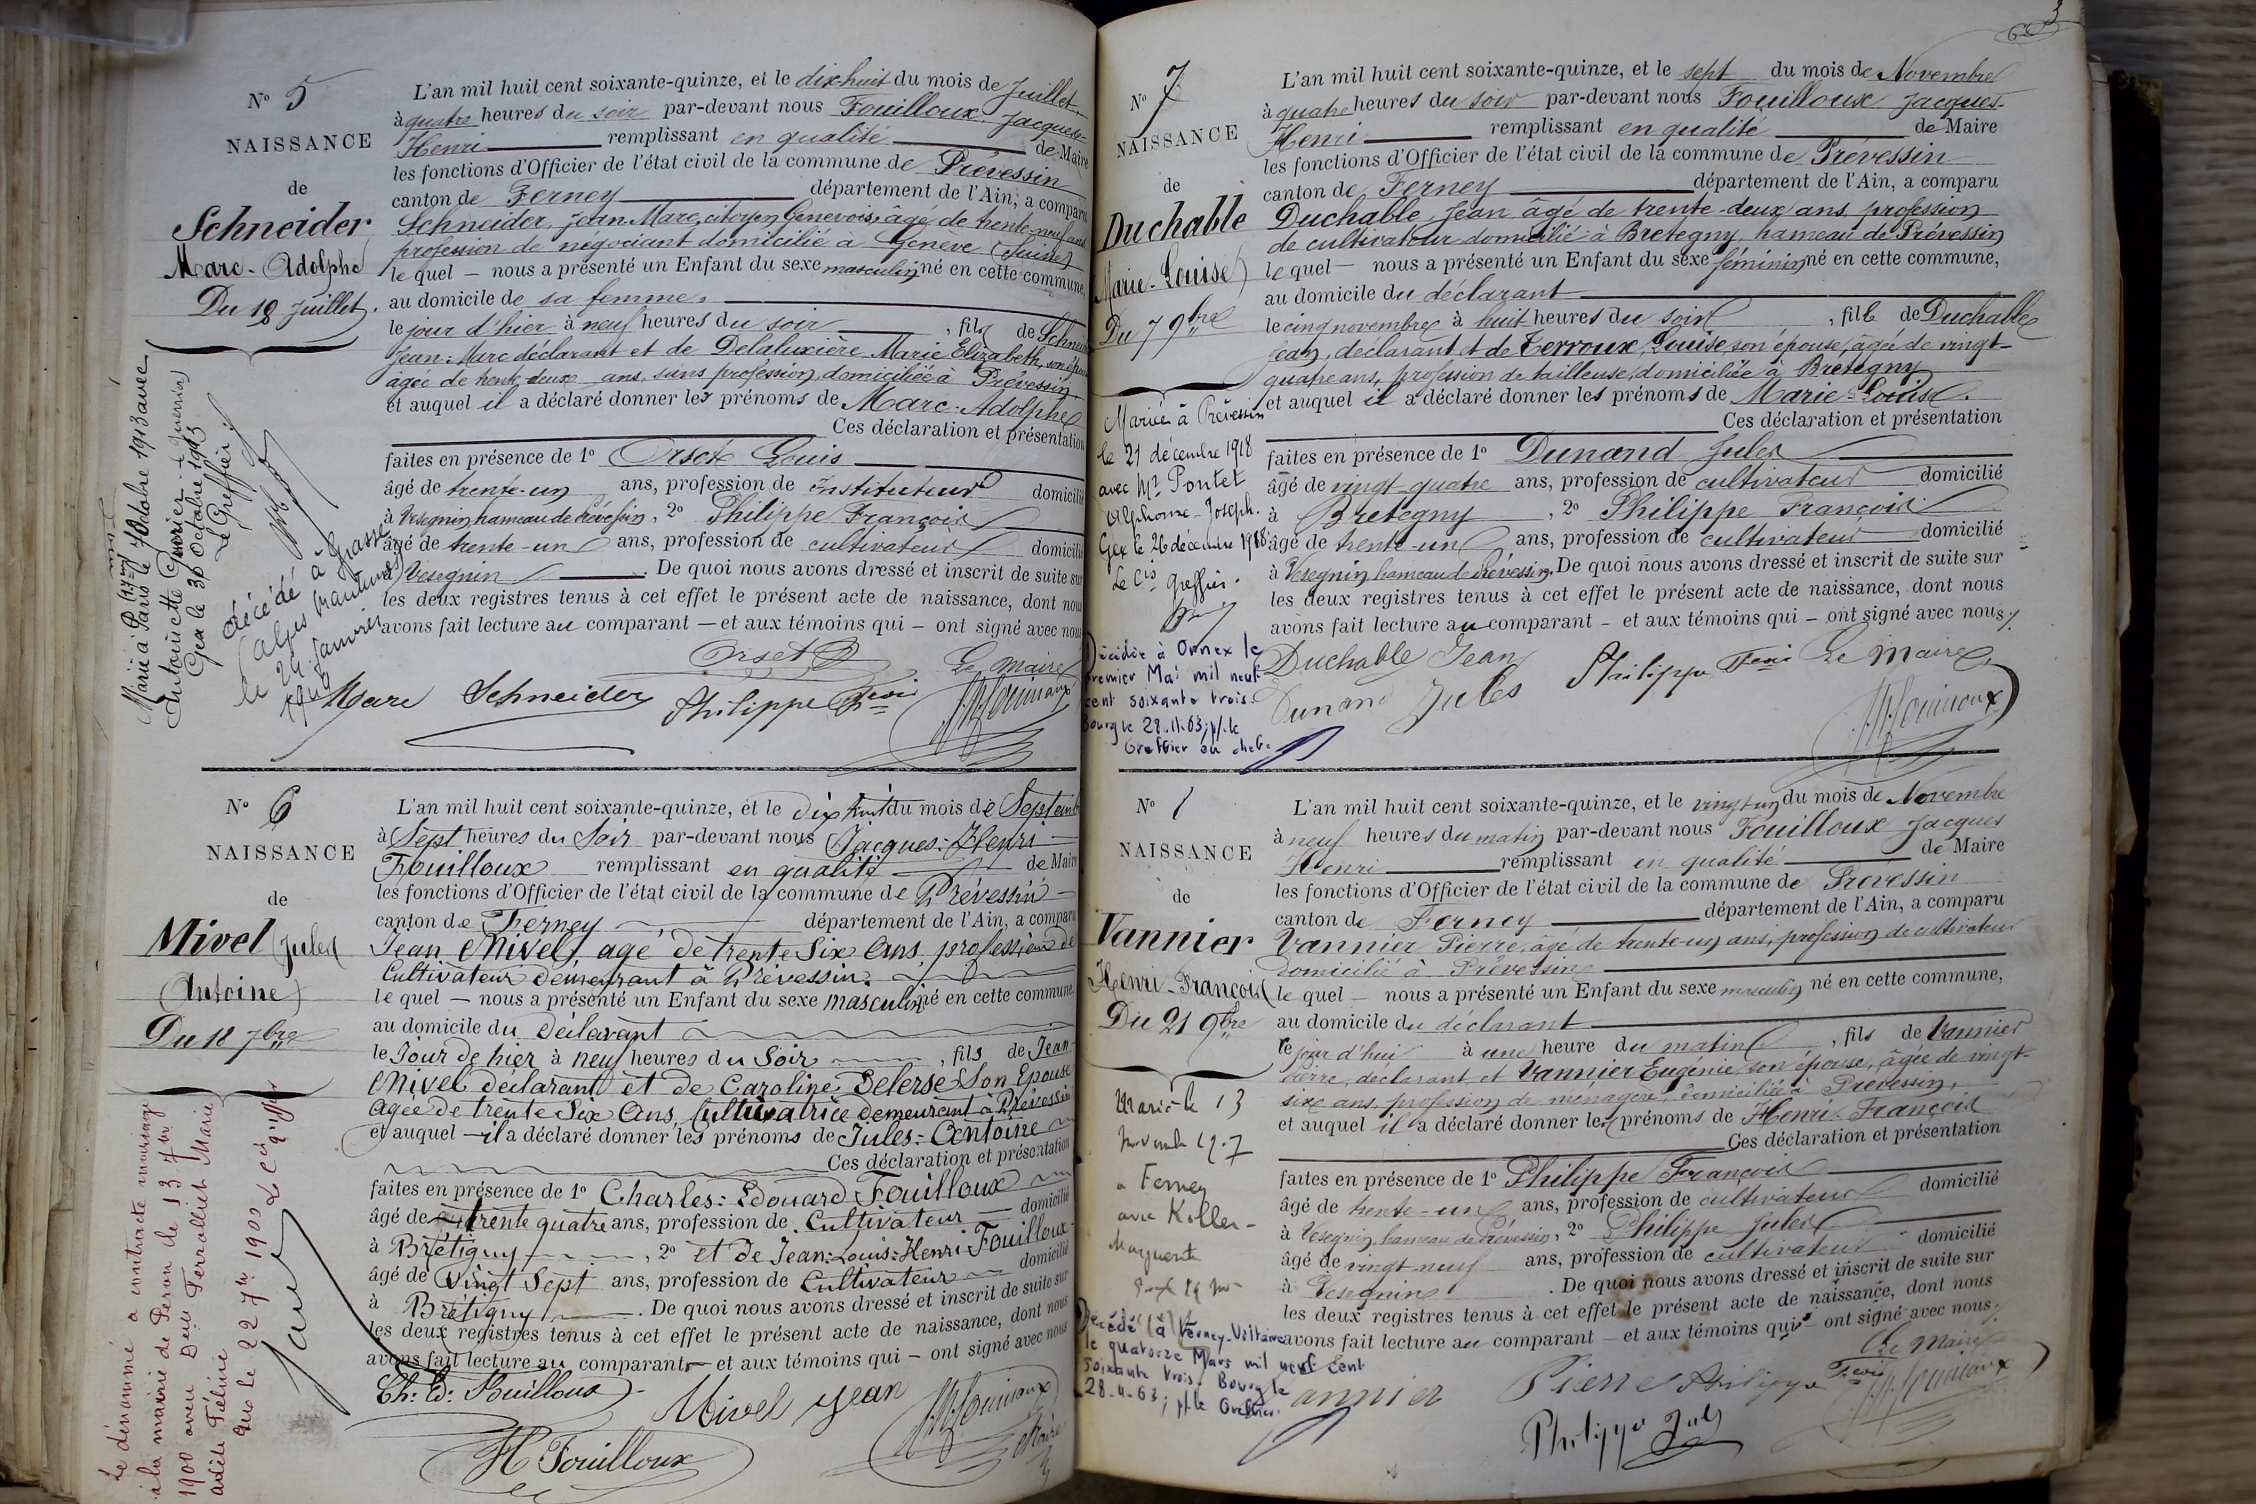 N° 5
NAISSANCE
de
Schneider
Marc-Adolphe
Du 18 Juillet.
L'an mil huit cent soixante-quinze, et le dix huit du mois de Juillet
à quatre heures du soir par-devant nous Fouilloux Jacques-
Henri remplissant en qualité de Maire
les fonctions d'Officier de l'état civil de la commune de Prévessin
canton de Ferney département de l'Ain, a comparu
Schneider, Jean-Marc, citoyen Genevois, âgé de trente-neuf ans
profession de négociant domicilié à Genève (Suisse)
lequel — nous a présenté un Enfant du sexe masculin né en cette commune,
au domicile de sa femme,
le jour d'hier à neuf heures du soir, fils de Schneider
Jean-Marc déclarant et de Delaluxière Marie Elizabeth, son épouse
âgée de trente-deux ans, sans profession, domiciliée à Prévessin
et auquel il a déclaré donner les prénoms de Marc-Adolphe
Ces déclaration et présentation
faites en présence de 1° Orset Louis
âgé de trente-un ans, profession de Instituteur domicilié
à Vesegnin hameau de Prévessin, 2° Philippe François
âgé de trente-un ans, profession de cultivateur domicilié
à Vesegnin. De quoi nous avons dressé et inscrit de suite sur
les deux registres tenus à cet effet le présent acte de naissance, dont nous
avons fait lecture au comparant — et aux témoins qui — ont signé avec nous
Orset L Le Maire
Marc Schneider Philippe Fcois
Marié à Paris le 7 Octobre 1913 avec
Antoinette
Gex le 30 Octobre 1913
Le Greffier
Décédé à Grasse
(Alpes Maritimes)
le 24 Janvier
N° 6
NAISSANCE
de
Mivel Jules
Antoine
Du 18 7bre
L'an mil huit cent soixante-quinze, et le dix huit du mois de Septembre
à Sept heures du Soir par-devant nous Jacques-Henri
Fouilloux remplissant en qualité de Maire
les fonctions d'Officier de l'état civil de la commune de Prévessin
canton de Ferney département de l'Ain, a comparu
Jean Mivel, agé de trente Six Ans, profession de
Cultivateur demeurant à Prévessin.
lequel — nous a présenté un Enfant du sexe masculin né en cette commune,
au domicile du Déclarant
le Jour de hier à neuf heures du Soir, fils de Jean
Mivel déclarant et de Caroline Delerse Son Epouse
agée de trente Six Ans, Cultivatrice demeurant à Prévessin
et auquel — il a déclaré donner les prénoms de Jules-Antoine
Ces déclaration et présentation
faites en présence de 1° Charles-Edouard Fouilloux
âgé de trente quatre ans, profession de Cultivateur domicilié
à Brétigny, 2° et de Jean-Louis-Henri Fouilloux
âgé de Vingt Sept ans, profession de Cultivateur domicilié
à Brétigny. De quoi nous avons dressé et inscrit de suite sur
les deux registres tenus à cet effet le présent acte de naissance, dont nous
avons fait lecture au comparant — et aux témoins qui — ont signé avec nous
Ch: Ed: Fouilloux Mivel Jean
H Fouilloux Maire
Le dénommé a contracté mariage
à la mairie de Péron le 13 7bre
1900 avec Delle Ferrolliet Marie
Gex le 22 7bre 1900 Le Cis Greffier
3
N° 7
NAISSANCE
de
Duchable
Marie-Louise
Du 7 9bre
L'an mil huit cent soixante-quinze, et le sept du mois de Novembre
à quatre heures du soir par-devant nous Fouilloux Jacques-
Henri remplissant en qualité de Maire
les fonctions d'Officier de l'état civil de la commune de Prévessin
canton de Ferney département de l'Ain, a comparu
Duchable, Jean âgé de trente-deux ans, profession
de cultivateur domicilié à Bretegny hameau de Prévessin
lequel — nous a présenté un Enfant du sexe féminin né en cette commune,
au domicile du déclarant
le cinq novembre à huit heures du soir, fille de Duchable
Jean, déclarant et de Terroux, Louise, son épouse, âgée de vingt-
quatre ans, profession de tailleuse, domiciliée à Bretegny
et auquel il a déclaré donner les prénoms de Marie-Louise.
Ces déclaration et présentation
faites en présence de 1° Dunand Jules
âgé de vingt quatre ans, profession de cultivateur domicilié
à Bretegny, 2° Philippe François
âgé de trente-un ans, profession de cultivateur domicilié
à Vesegnin hameau de Prévessin. De quoi nous avons dressé et inscrit de suite sur
les deux registres tenus à cet effet le présent acte de naissance, dont nous
avons fait lecture au comparant — et aux témoins qui — ont signé avec nous.
Duchable Jean Philippe Fcois Le Maire
Dunand Jules
Mariée à Prévessin
le 21 décembre 1918
avec Mr Pontet
Alphonse-Joseph.
Gex le 26 décembre 1918
Le Cis Greffier.
Décédée à Ornex le
premier Mai mil neuf
cent soixante trois.
Bourg le 28.11.63; p/.le
Greffier en chef.
N° 1
NAISSANCE
de
Vannier
Henri-François
Du 21 9bre
L'an mil huit cent soixante-quinze, et le vingt un du mois de Novembre
à neuf heures du matin par-devant nous Fouilloux Jacques
Henri remplissant en qualité de Maire
les fonctions d'Officier de l'état civil de la commune de Prévessin
canton de Ferney département de l'Ain, a comparu
Vannier Pierre, âgé de trente-un ans, profession de cultivateur
domicilié à Prévessin
lequel — nous a présenté un Enfant du sexe masculin né en cette commune,
au domicile du déclarant
le jour d'hui à une heure du matin, fils de Vannier
Pierre, déclarant, et Vannier Eugénie son épouse, âgée de vingt-
six ans, profession de ménagère, domiciliée à Prévessin,
et auquel il a déclaré donner les prénoms de Henri-François
Ces déclaration et présentation
faites en présence de 1° Philippe François
âgé de trente-un ans, profession de cultivateur domicilié
à Vesegnin, hameau de Prévessin, 2° Philippe Jules
âgé de vingt neuf ans, profession de cultivateur domicilié
à Vesegnin. De quoi nous avons dressé et inscrit de suite sur
les deux registres tenus à cet effet le présent acte de naissance, dont nous
avons fait lecture au comparant — et aux témoins qui — ont signé avec nous.
Le Maire
Vannier Pierre Philippe Fcois
Philippe Jules
Marié le 13
Novembre 1907
à Ferney
avec Koller
Marguerite
Décédé (à) Ferney-Voltaire
le quatorze Mars mil neuf cent
soixante trois. Bourg le
28-11-63; p/.le Greffier.